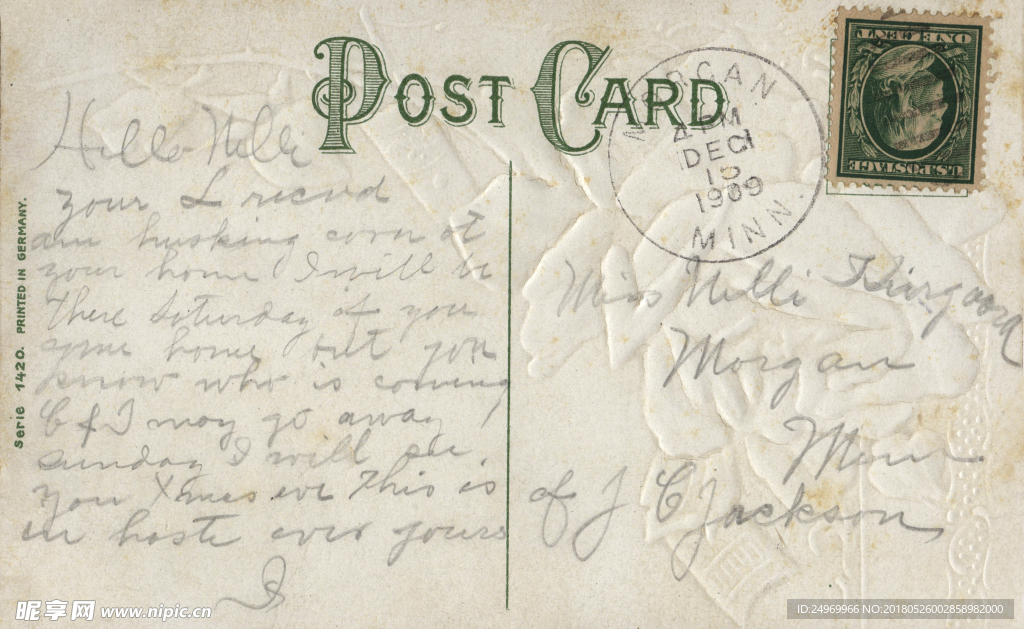 POST CARD
MORGAN
4 PM
DEC
1909
MINN.
ONE CENT
U.S. POSTAGE
Serie 1420. PRINTED IN GERMANY.
Hello Nelli
your I recived
am husking corn at
your home I will be
There Saturday if you
come home but you
know who is coming
C & I may go away
sunday I will see
you Xmas eve This is
in haste ever yours
I
Miss Nelli
Morgan
Minn
of J C Jackson
昵享网 www.nipic.cn
ID:24969966 NO:20180526002858982000